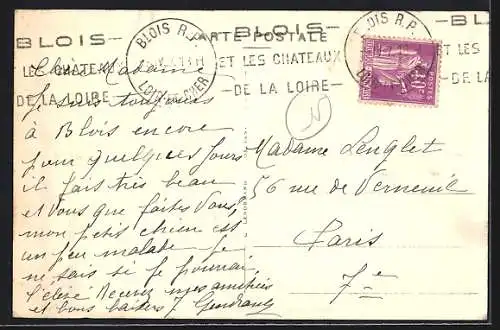 CARTE POSTALE
BLOIS — BLOIS — BL
LES CHATEAUX ET LES CHATEAUX ET LES
DE LA LOIRE — DE LA LOIRE — DE LA
BLOIS R.P.
LOIR-ET-CHER
BLOIS R.P.
POSTES
Chère Madame
Je suis toujours
à Blois encore
pour quelques jours
il fais très beau
et vous que faites vous,
mon petit chien est
un peu malade je
ne sais si je pourrai
l'élevé Recevez mes amitiés
et bons baisers J
Madame Lenglet
56 rue de Verneuil
Paris
7e